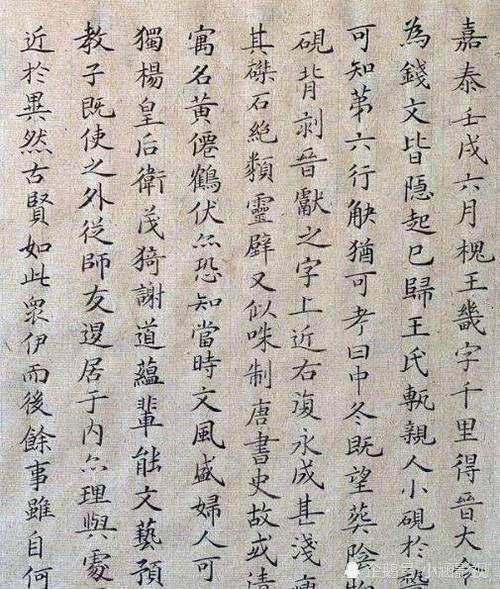 嘉泰壬戌六月槐王畿字千里得晉大令
為錢文皆隱起已歸王氏甎親人小硯於
可知第六行觖猶可考曰中冬既望葵陰
硯背刻晉獻之字上近右復永成甚淺瘦
其磔石絕類靈壁又似咮制唐書史故或清
寓名黃僊鶴伏亦恐知當時文風盛婦人可
獨楊皇后衛茂猗謝道蘊輩能文藝預
教子既使之外從師友退居于内亦理與處
近於異然古賢如此衆伊而後餘事雖自何
企鹅号 小涵影视